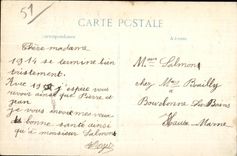 51
CARTE POSTALE
Correspondance
Adresse
Chère madame
1914 se termine bien
tristement.
Avec 1915 j'espère vous
revoir ainsi que Pierre et
Jean
je vous envoie mes vœux
de bonne santé ainsi
qu'à monsieur Salmon
Mme Salmon
chez Mme Brailly
à
Bourbonne les Bains
Haute Marne